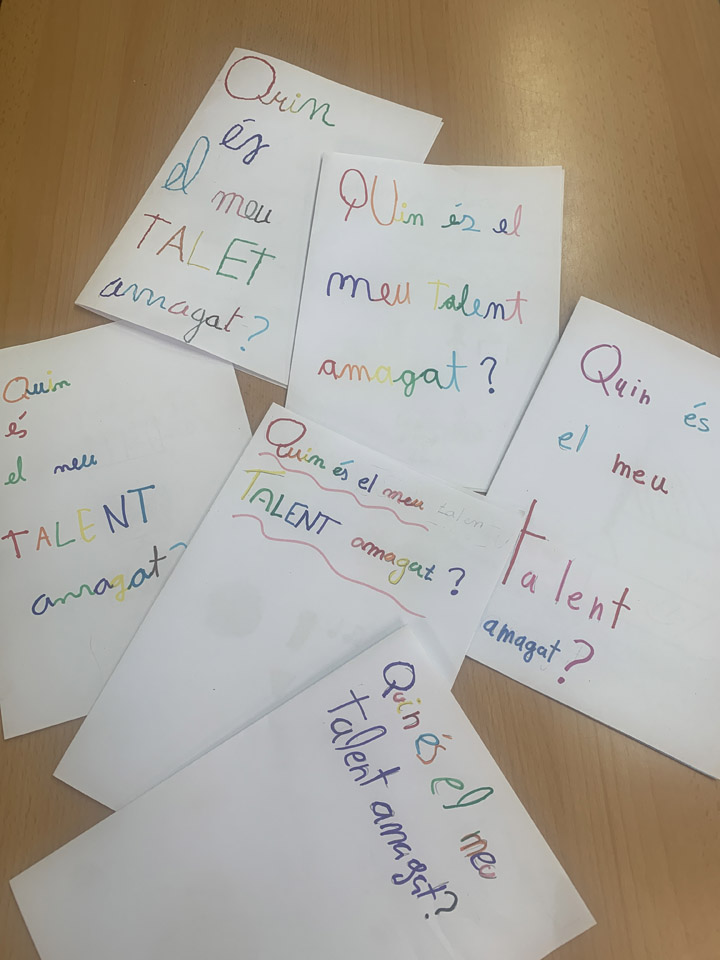 Quin
és
el meu
TALET
amagat?
QUin és el
meu Talent
amagat?
Quin és
el meu
Talent
amagat?
Quin
és
el meu
TALENT
amagat?
Quin és el meu talent
TALENT amagat?
Quin és el meu
talent amagat?